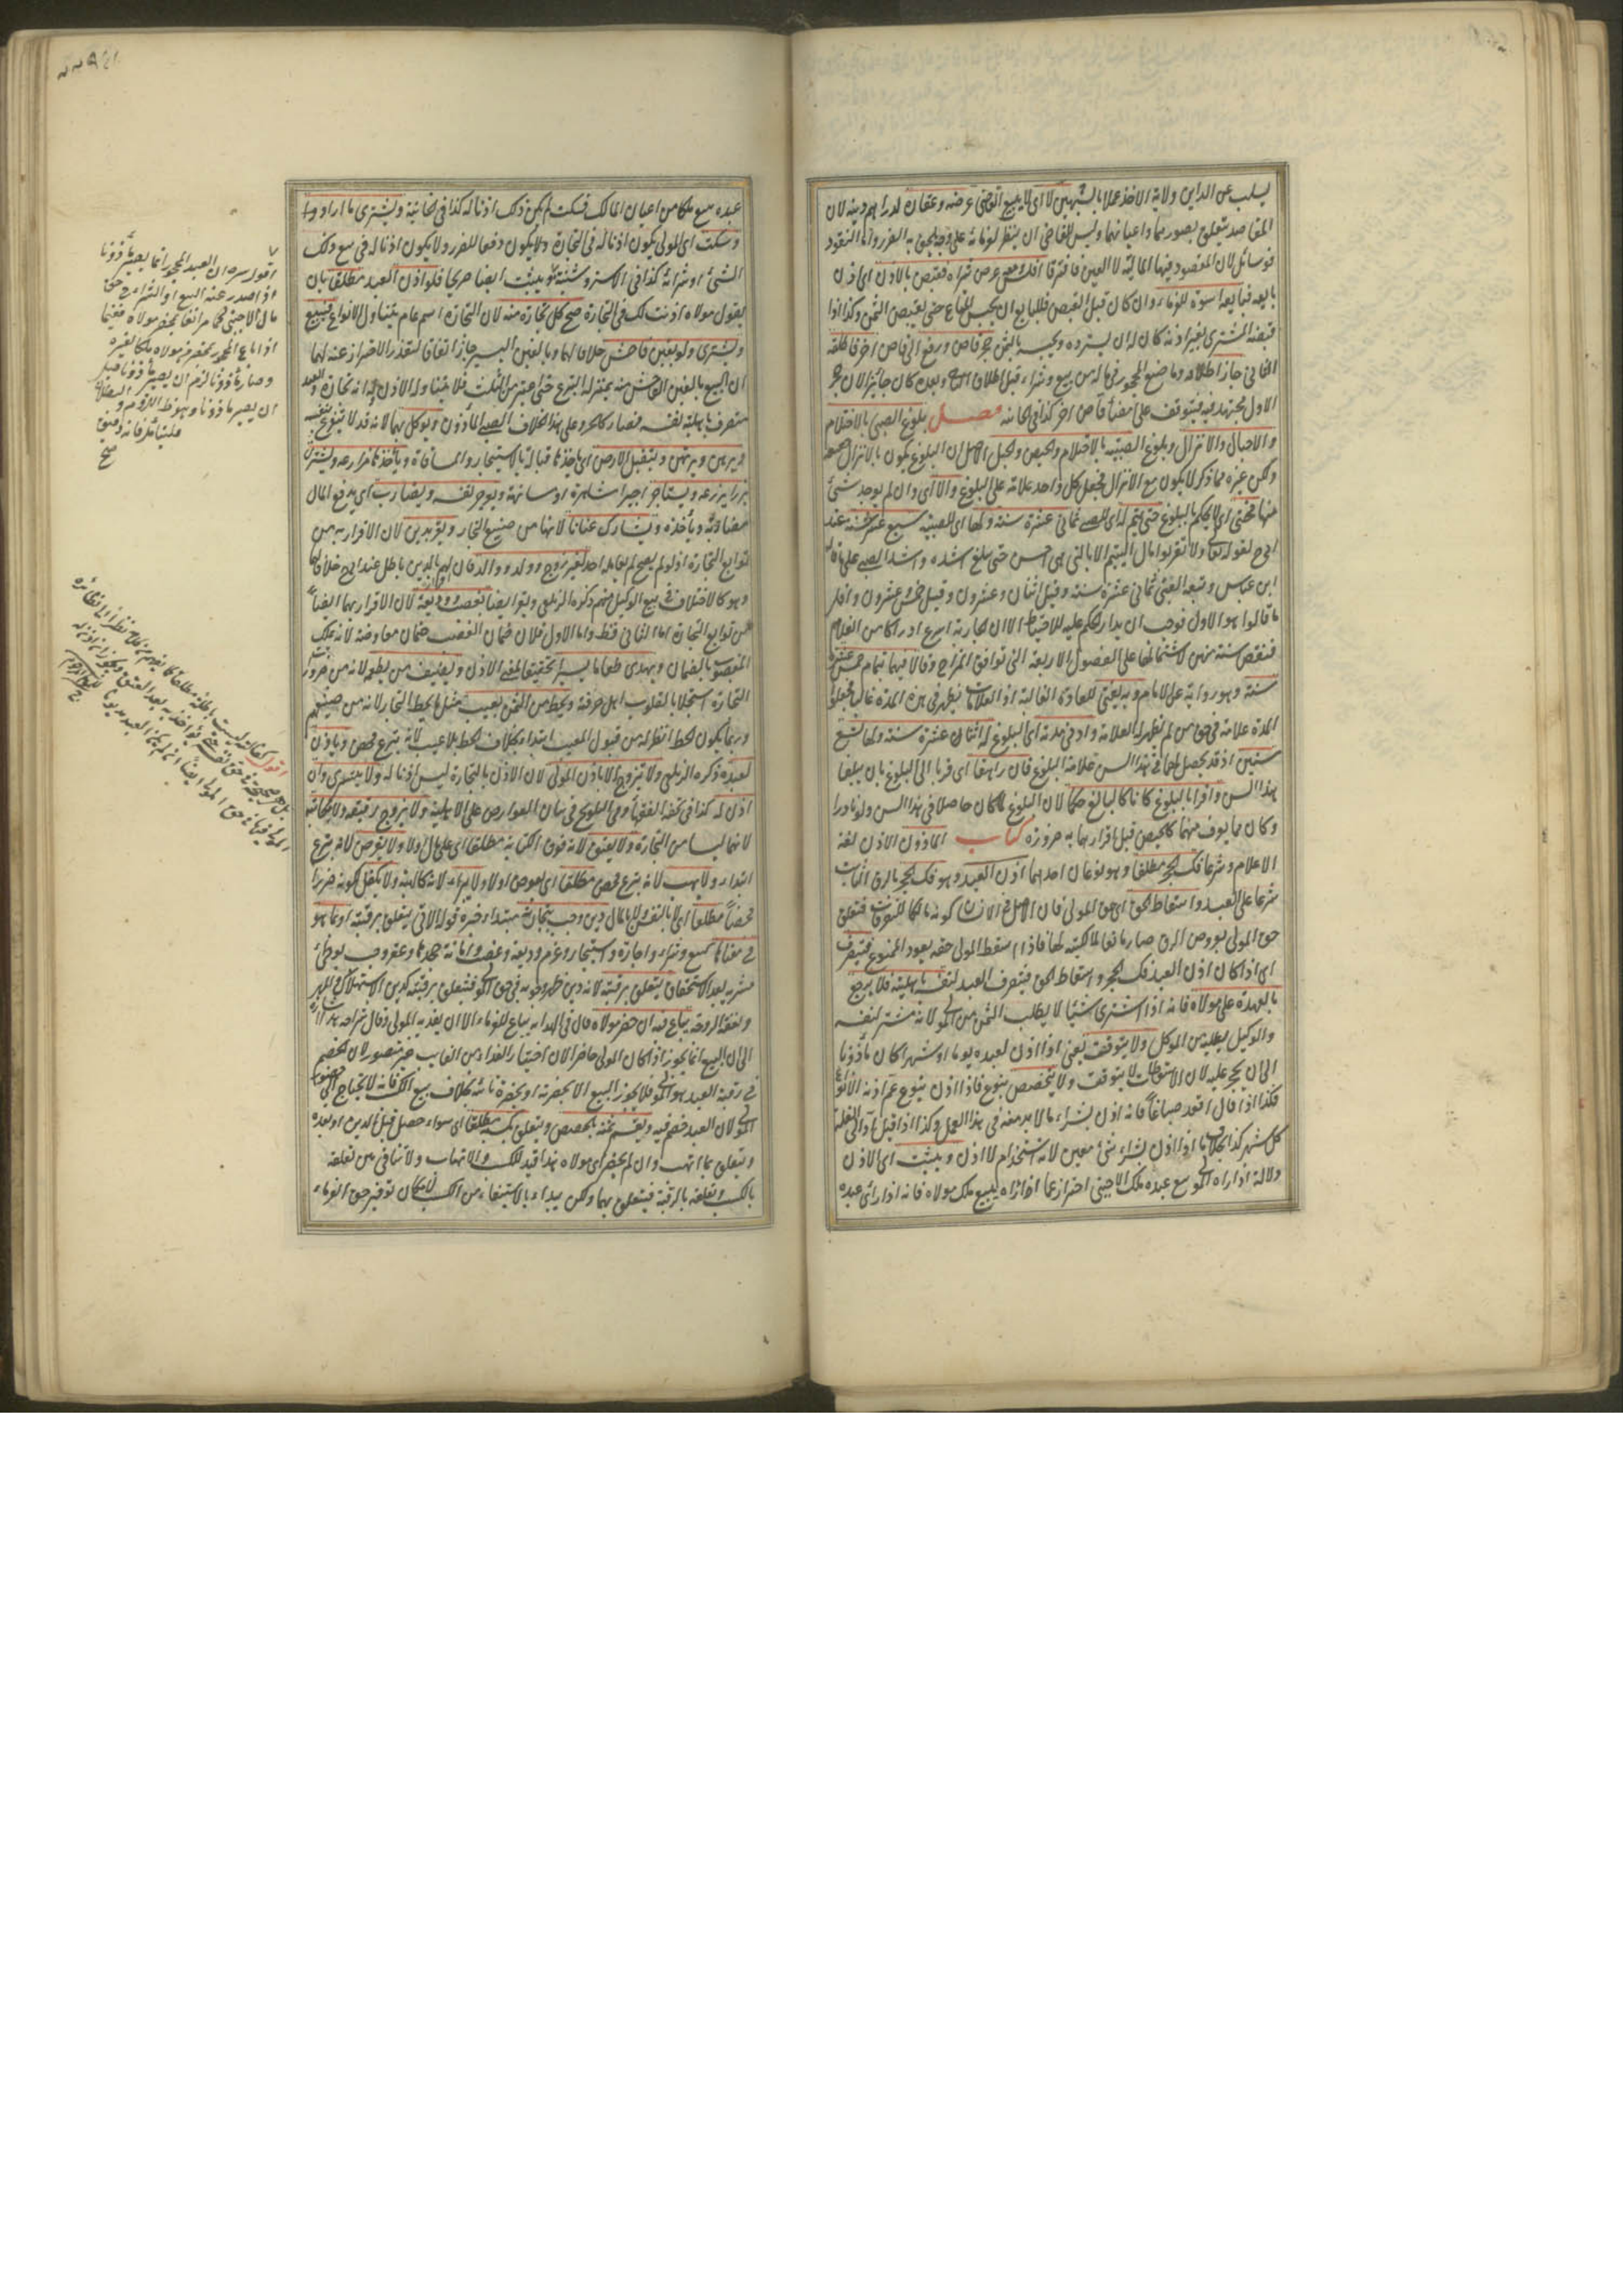 يسلب عن الداين ولاية الاخذ عملا بالشبهين لا اى لا يبيع القاضى عرضه وعقاره لدراهم دينه لان
المقاصد تتعلق بصورها واعيانها وليس للقاضى ان ينظر لغرمائه على وجه يلحق به الضرر واما النقود
فوسائل لان المقصود فيها المالية لا العين فافترقا افلس ومعه عرض شراه فقبضه بالاذن اى اذن
بايعه فبايعه اسوة للغرماء وان كان قبل القبض فللبايع ان يحبس المتاع حتى يقبض الثمن وكذا اذا
قبضه المشترى بغير اذنه كان له ان يسترده ويحبسه بالثمن حجر قاض ورفع الى قاض اخر فاطلقه
الثانى جاز اطلاقه وما صنع المحجور فى ماله من بيع وشراء قبل اطلاق الثانى وبعده كان جائزا لان حجر
الاول مجتهد فيه فيتوقف على امضاء قاض اخر كذا فى الخانية فصل بلوغ الصبى بالاحتلام
والاحبال والانزال وبلوغ الصبية بالاحتلام والحيض والحبل الاصل ان البلوغ يكون بالانزال حقيقة
ولكن غيره مما ذكر لا يكون مع الانزال فجعل كل واحد علامة على البلوغ والا اى وان لم يوجد شئ
منها فحتى اى لا يحكم بالبلوغ حتى يتم له اى للصبى ثمانى عشرة سنة ولها اى للصبية سبع عشرة سنة عند
ابى ح لقوله تعالى ولا تقربوا مال اليتيم الا بالتى هى احسن حتى يبلغ اشده واشد الصبى على ما قاله
ابن عباس وتبعه القتبى ثمانى عشرة سنة وقيل اثنان وعشرون وقيل خمس وعشرون واقل
ما قالوا هو الاول فوجب ان يدار الحكم عليه للاحتياط الا ان الجارية اسرع ادراكا من الغلام
فنقص سنة منهن لاشتمالها على الفصول الاربعة التى توافق المزاج وقالا فيهما بتمام خمس عشرة
سنة وهو رواية عن الامام وبه يفتى للعادة الغالبة اذ العلامات تظهر فى هذه المدة غالبا فجعلوا
المدة علامة فى حق من لم تظهر له العلامة وادنى مدته اى البلوغ له اثنتا عشرة سنة ولها تسع
سنين اذ قد يحصل لهما فى هذا السن علامة البلوغ فان راهقا اى قربا الى البلوغ بان بلغا
هذا السن واقرا بالبلوغ كانا كالبالغ حكما لان البلوغ لما كان حاصلا فى هذا السن ولو نادرا
وكان مما يعرف منهما كالحيض قبل اقرارهما به ضرورة كتاب الماذون الاذن لغة
الاعلام وشرعا فك الحجر مطلقا وهو نوعان احدهما اذن العبد وهو فك الحجر بالرق الثابت
شرعا على العبد واسقاط الحق اى حق المولى فان الاصل فى الانسان كونه مالكا للتصرفات فتعلق
حق المولى بعروض الرق صار مانعا لمالكيته لها فاذا اسقط المولى حقه يعود الممنوع فيتصرف
اى اذا كان اذن العبد فك الحجر واسقاط الحق فيتصرف العبد لنفسه باهليته فلا يرجع
بالعهدة على مولاه فانه اذا اشترى شيئا لا يطلب الثمن من المولى لانه مشتر لنفسه
والوكيل يطلبه من الموكل ولا يتوقت يعنى اذا اذن لعبده يوما او شهرا كان مأذونا
الى ان يحجر عليه لان الاسقاطات لا يتوقت ولا يتخصص بنوع فاذا اذن بنوع عم اذنه الانواع
فكذا اذا قال اقعد صباغا فانه اذن بشراء ما لا بد منه فى هذا العمل وكذا اذا قيل اد الى الغلة
كل شهر كذا بخلاف ما اذا اذن لشراء شئ معين لانه استخدام لا اذن ويثبت اى الاذن
دلالة اذا راه المولى يبيع عبده ملك الاجنبى احتراز عما اذا راه يبيع ملك مولاه فانه اذا راى عبده
عبده يبيع ملكا من اعيان المالك فسكت لم يكن ذلك اذنا له كذا فى الخانية ويشترى ما اراد
وسكت اى المولى يكون اذنا له فى التجارة ولا يكون دفعا للضرر ولا يكون اذنا له فى بيع ذلك
الشئ او شرائه كذا فى الاسروشنية ويثبت ايضا صريحا فلو اذن العبد مطلقا بان
يقول مولاه اذنت لك فى التجارة صح كل تجارة منه لان التجارة اسم عام يتناول الانواع فيبيع
ويشترى ولو بغبن فاحش خلافا لهما وبالغبن اليسير جاز اتفاقا لتعذر الاحتراز عنه لهما
ان البيع بالغبن الفاحش منه بمنزلة التبرع حتى اعتبر من الثلث فلا يتناوله الاذن وله انه تجارة والعبد
متصرف باهلية نفسه فصار كالحر وعلى هذا الخلاف الصبى المأذون ويوكل بهما لانه قد لا يتفرغ بنفسه
ويرهن ويرتهن ويتقبل الارض اى ياخذها قبالة بالاستيجار والمساقاة ويأخذها مزارعة ويشترى
بزرا يزرعه ويستأجر اجيرا مشاهرة او مسانهة ويوجر نفسه ويضارب اى يدفع المال
مضاربة ويأخذه ويشارك عنانا لانها من صنيع التجار ويقر بدين لان الاقرار به من
توابع التجارة اذ لو لم يصح لم يعامله احد لغير زوج وولد ووالد فان اقراره لهم بالدين باطل عند ابى ح خلافا لهما
وهو كالاختلاف فى بيع الوكيل منهم ذكره الزيلعى ويقر ايضا بغصب ووديعة لان الاقرار بهما ايضا
من توابع التجارة اما الثانى فقط واما الاول فلان ضمان الغصب ضمان معاوضة لانه يملك
المغصوب بالضمان ويهدى طعاما يسيرا تحقيقا لمعنى الاذن ويضيف من يطعمه لانه من ضرورات
التجارة استجلابا لقلوب اهل حرفته ويحط من الثمن بعيب مثل ما يحط التجار لانه من صنيعهم
وربما يكون الحط انظر له من قبول المعيب ابتداء بخلاف الحط بلا عيب لانه تبرع محض ويأذن
لعبده ذكره الزيلعى ولا يتزوج الا باذن المولى لان الاذن بالتجارة ليس اذنا له ولا يتسرى وان
اذن له كذا فى تحفة الفقهاء وفى التلويح فى بيان العوارض على الاهلية ولا يزوج رقيقه ولا يكاتبه
لانهما ليسا من التجارة ولا يعتق لانه فوق الكتابة مطلقا اى على مال اولا ولا يقرض لانه تبرع
ابتداء ولا يهب لانه تبرع محض مطلقا اى بعوض اولا ولا يبرء لانه كالهبة ولا يكفل لكونه ضررا
محضا مطلقا اى لا بالنفس ولا بالمال دين وجب بتجارته مبتدا وخبره قوله الاتى يتعلق برقبته او بما هو
فى معناها كبيع وشراء واجارة واستيجار وغرم وديعة وغصب وامانة جحدها وعقر وجب بوطئ
مشرية بعد الاستحقاق يتعلق برقبته لانه دين ظهر وجوبه فى حق المولى فيتعلق برقبته كدين الاستهلاك والمهر
ونفقة الزوجة يباع فيه ان حضر مولاه قال فى الهداية يباع للغرماء الا ان يفديه المولى وقال شراحه هذا اشارة
الى ان البيع انما يجوز اذا كان المولى حاضرا لان اختيار الفداء من الغايب غير متصور لان الخصم
فى رقبة العبد هو المولى فلا يجوز البيع الا بحضرته او بحضرة نائبه بخلاف بيع الكسب فانه لا يحتاج الى حضور
المولى لان العبد خصم فيه ويقسم ثمنه بالحصص ويتعلق بكسبه مطلقا اى سواء حصل قبل الدين او بعده
ويتعلق بما اتهب وان لم يحضر اى مولاه هذا قيد للكسب والاتهاب ولا تنافى بين تعلقه
بالكسب وتعلقه بالرقبة فيتعلق بهما ولكن يبدأ بالاستيفاء من الكسب لامكان توفير حق الغرماء
اقول سره ان العبد المحجور انما يصير مأذونا
اذا صدر عنه البيع او الشراء فى حق
مال الاجنبى كما مر انفا بحضرة مولاه فيهما
اذا باع المحجور بحضرة مولاه ملكا لغيره
وصار مأذونا لزم ان يصير مأذونا قبل
ان يصير مأذونا وهو ظ البطلان
فليتأمل فانه دقيق
صح